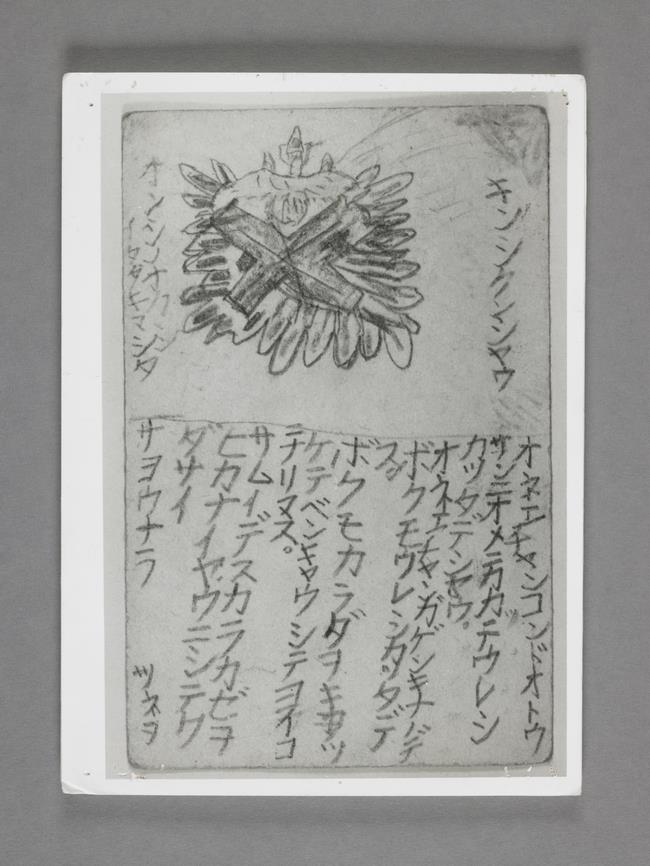 キンシクンシャウ
イタダキマシタ
オネエチャンコンドオトウ
サンニオメニカカ デウレシ
カッタデシャウ。
オネエチャンガゲンキナノデ
ボクモウレシカッタデ
ス。
ボクモカラダヲキヲツ
ケテベンキャウシテヨイコ
ニナリマス。
サムイデスカラカゼヲ
ヒカナイヤウニシテク
ダサイ
サヨウナラ
ツネヲ